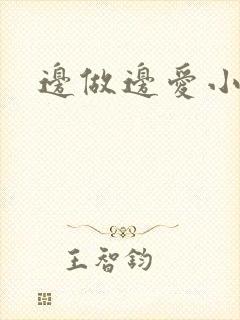 邊做邊愛小
王智鈞